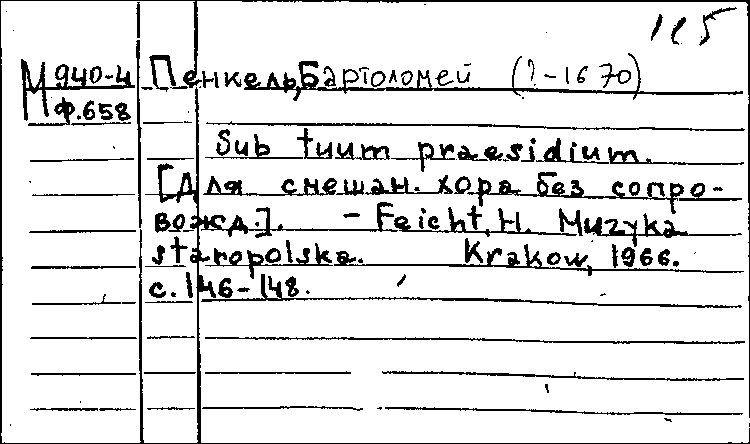 115
М 940-4 Пенкель, Бартоломей (?-1670)
ф.658
Sub tuum praesidium.
[Для смешан. хора без сопро-
вожд.]. - Feicht, H. Muzyka
staropolska. Krakow, 1966.
с. 146-148.